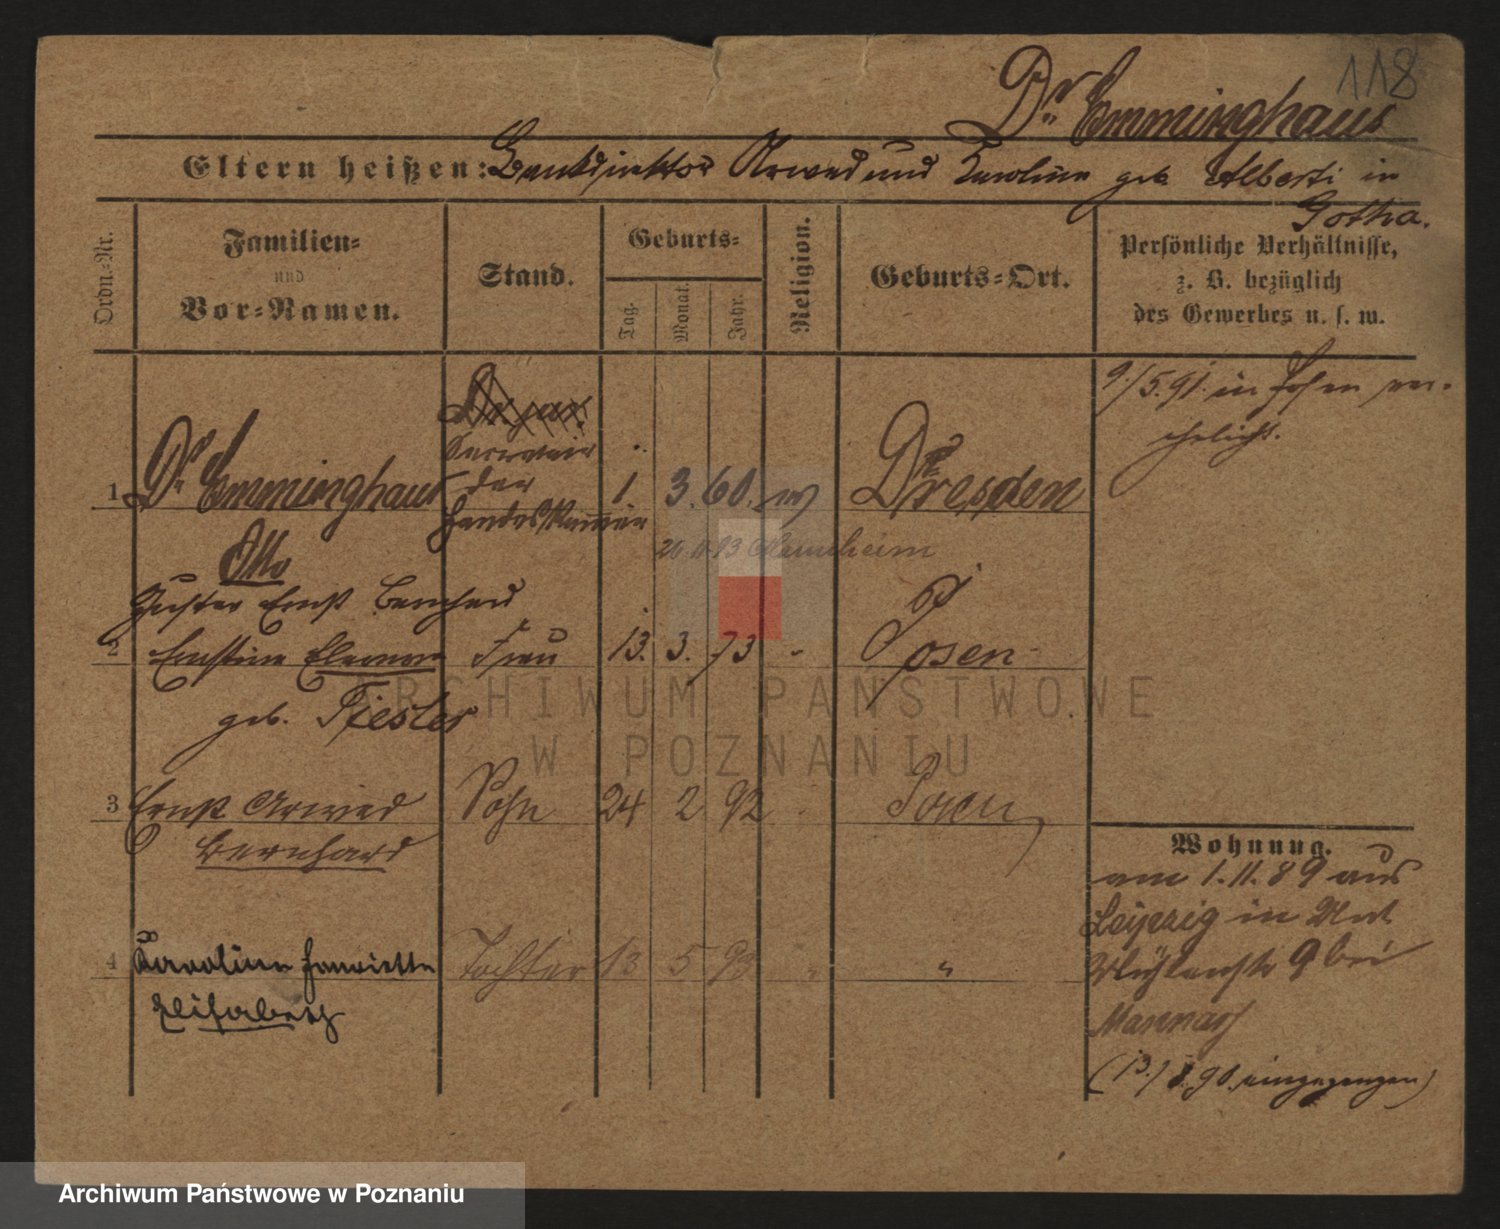 118
Dr Emminghaus
Eltern heißen: Bankdirektor Arwed und Karoline geb Alberti in
Gotha.
Ordn.-Nr.
Familien-
und
Vor-Namen.
Stand.
Geburts-
Tag.
Monat.
Jahr.
Religion.
Geburts-Ort.
Persönliche Verhältnisse,
z. B. bezüglich
des Gewerbes u. s. w.
9/5.91. in Posen ver-
ehelicht.
Secretair
der
Handelskammer
1 Dr Emminghaus 1. 3. 60. Dresden
Otto
Gustav Ernst Bernhard
20.11.93 Mannheim
2 Ernstine Eleonore Frau 13. 3. 73 " Posen
geb. Tiesler
3 Ernst Arwed Sohn 24 2 92 Posen
Bernhard
4 Karoline Henriette Tochter 13 5 93 " "
Elisabeth
Wohnung.
am 1.11.89 aus
Leipzig in Unt
Mühlenstr 9 bei
(13./8.90. eingegangen)
ARCHIWUM PAŃSTWOWE
W POZNANIU
Archiwum Państwowe w Poznaniu